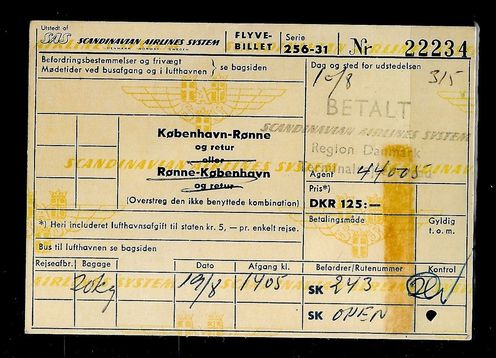 Udstedt af
SAS SCANDINAVIAN AIRLINES SYSTEM
DENMARK NORWAY SWEDEN
FLYVE-
BILLET
Serie
256-31
Nr 22234
Befordringsbestemmelser og frivægt
Mødetider ved busafgang og i lufthavnen } se bagsiden
Dag og sted for udstedelsen
10/8 315
BETALT
SCANDINAVIAN AIRLINES SYSTEM
Region Danmark
Agent 44005
København-Rønne
og retur
eller
Rønne-København
og retur
(Overstreg den ikke benyttede kombination)
Pris*)
DKR 125:—
*) Heri inkluderet lufthavnsafgift til staten kr. 5, — pr. enkelt rejse.
Bus til lufthavnen se bagsiden
Betalingsmåde
Gyldig
t. o. m.
Rejseafbr. Bagage Dato Afgang kl. Befordrer/Rutenummer Kontrol
20kg 19/8 1905 SK 243
SK OPEN